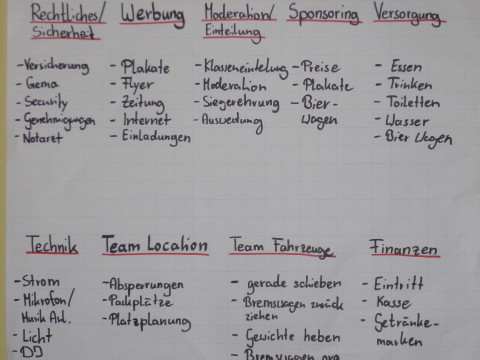 Rechtliches/
Sicherheit
- Versicherung
- Gema
- Security
- Genehmigungen
- Notaret
Werbung
- Plakate
- Flyer
- Zeitung
- Internet
- Einladungen
Moderation/
Einteilung
- Klasseneinteilung
- Moderation
- Siegerehrung
- Auswertung
Sponsoring
- Preise
- Plakate
- Bier-
wagen
Versorgung
- Essen
- Trinken
- Toiletten
- Wasser
- Bier Wagen
Technik
- Strom
- Mikrofon/
Musik Anl.
- Licht
- DJ
Team Location
- Absperrungen
- Parkplätze
- Platzplanung
Team Fahrzeuge
- gerade schieben
- Bremswagen zurück
ziehen
- Gewichte heben
- Bremswagen
Finanzen
- Eintritt
- Kasse
- Getränke-
marken